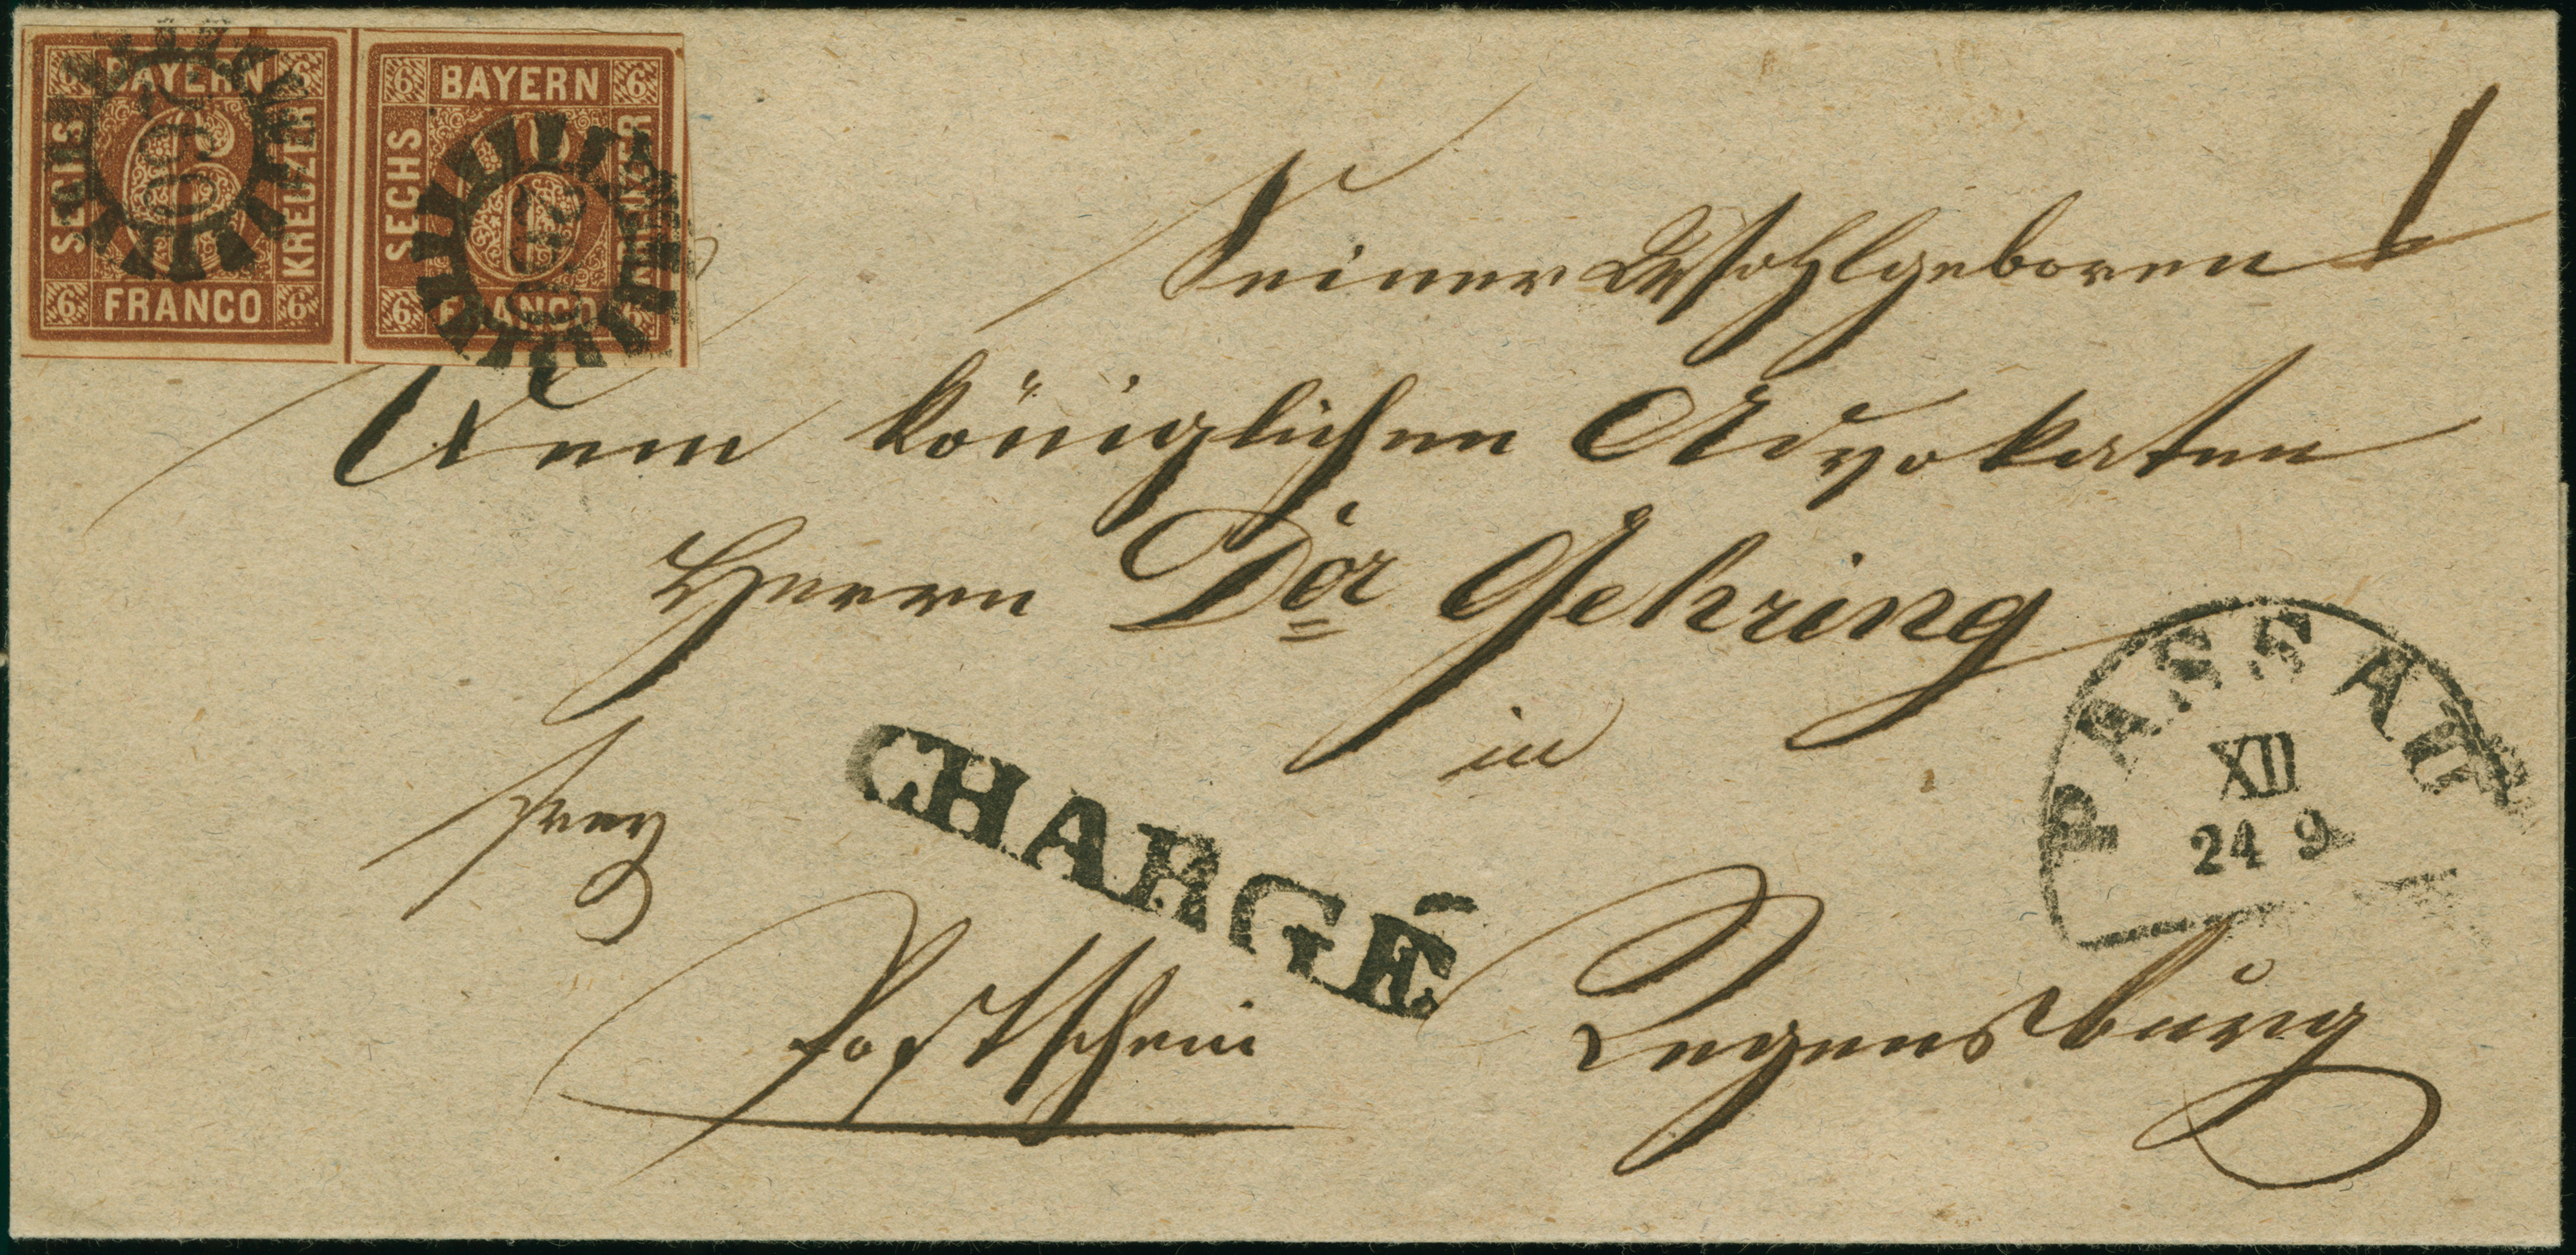 6 BAYERN 6
SECHS
KREUZER
6 FRANCO 6
6 BAYERN 6
SECHS
KREUZER
6 FRANCO 6
Seiner Wohlgeboren
Dem königlichen Advokaten
Herrn Dor Gehring
in
frey
CHARGÉ
PASSAU
XII
24 9
Postschein
Regensburg